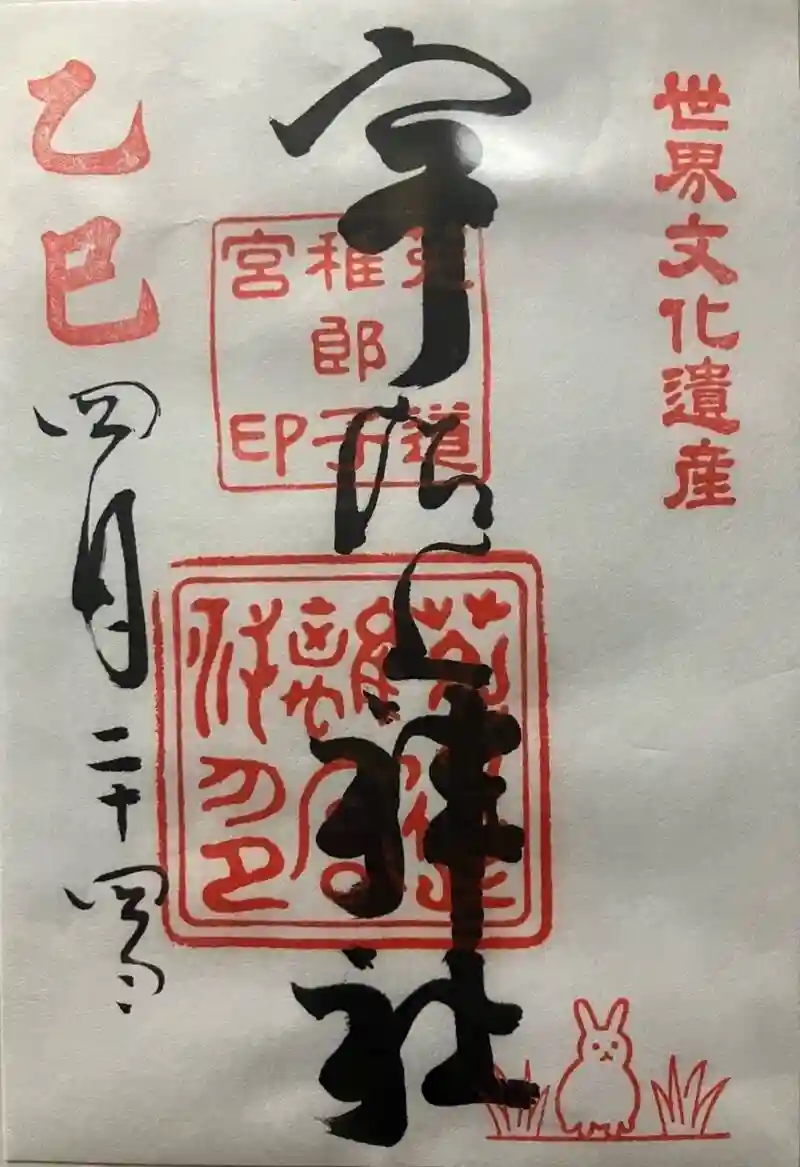 世界文化遺産
宇治上神社
菟道
稚郎子
宮印
菟道
離宮
印
乙巳
四月二十四日